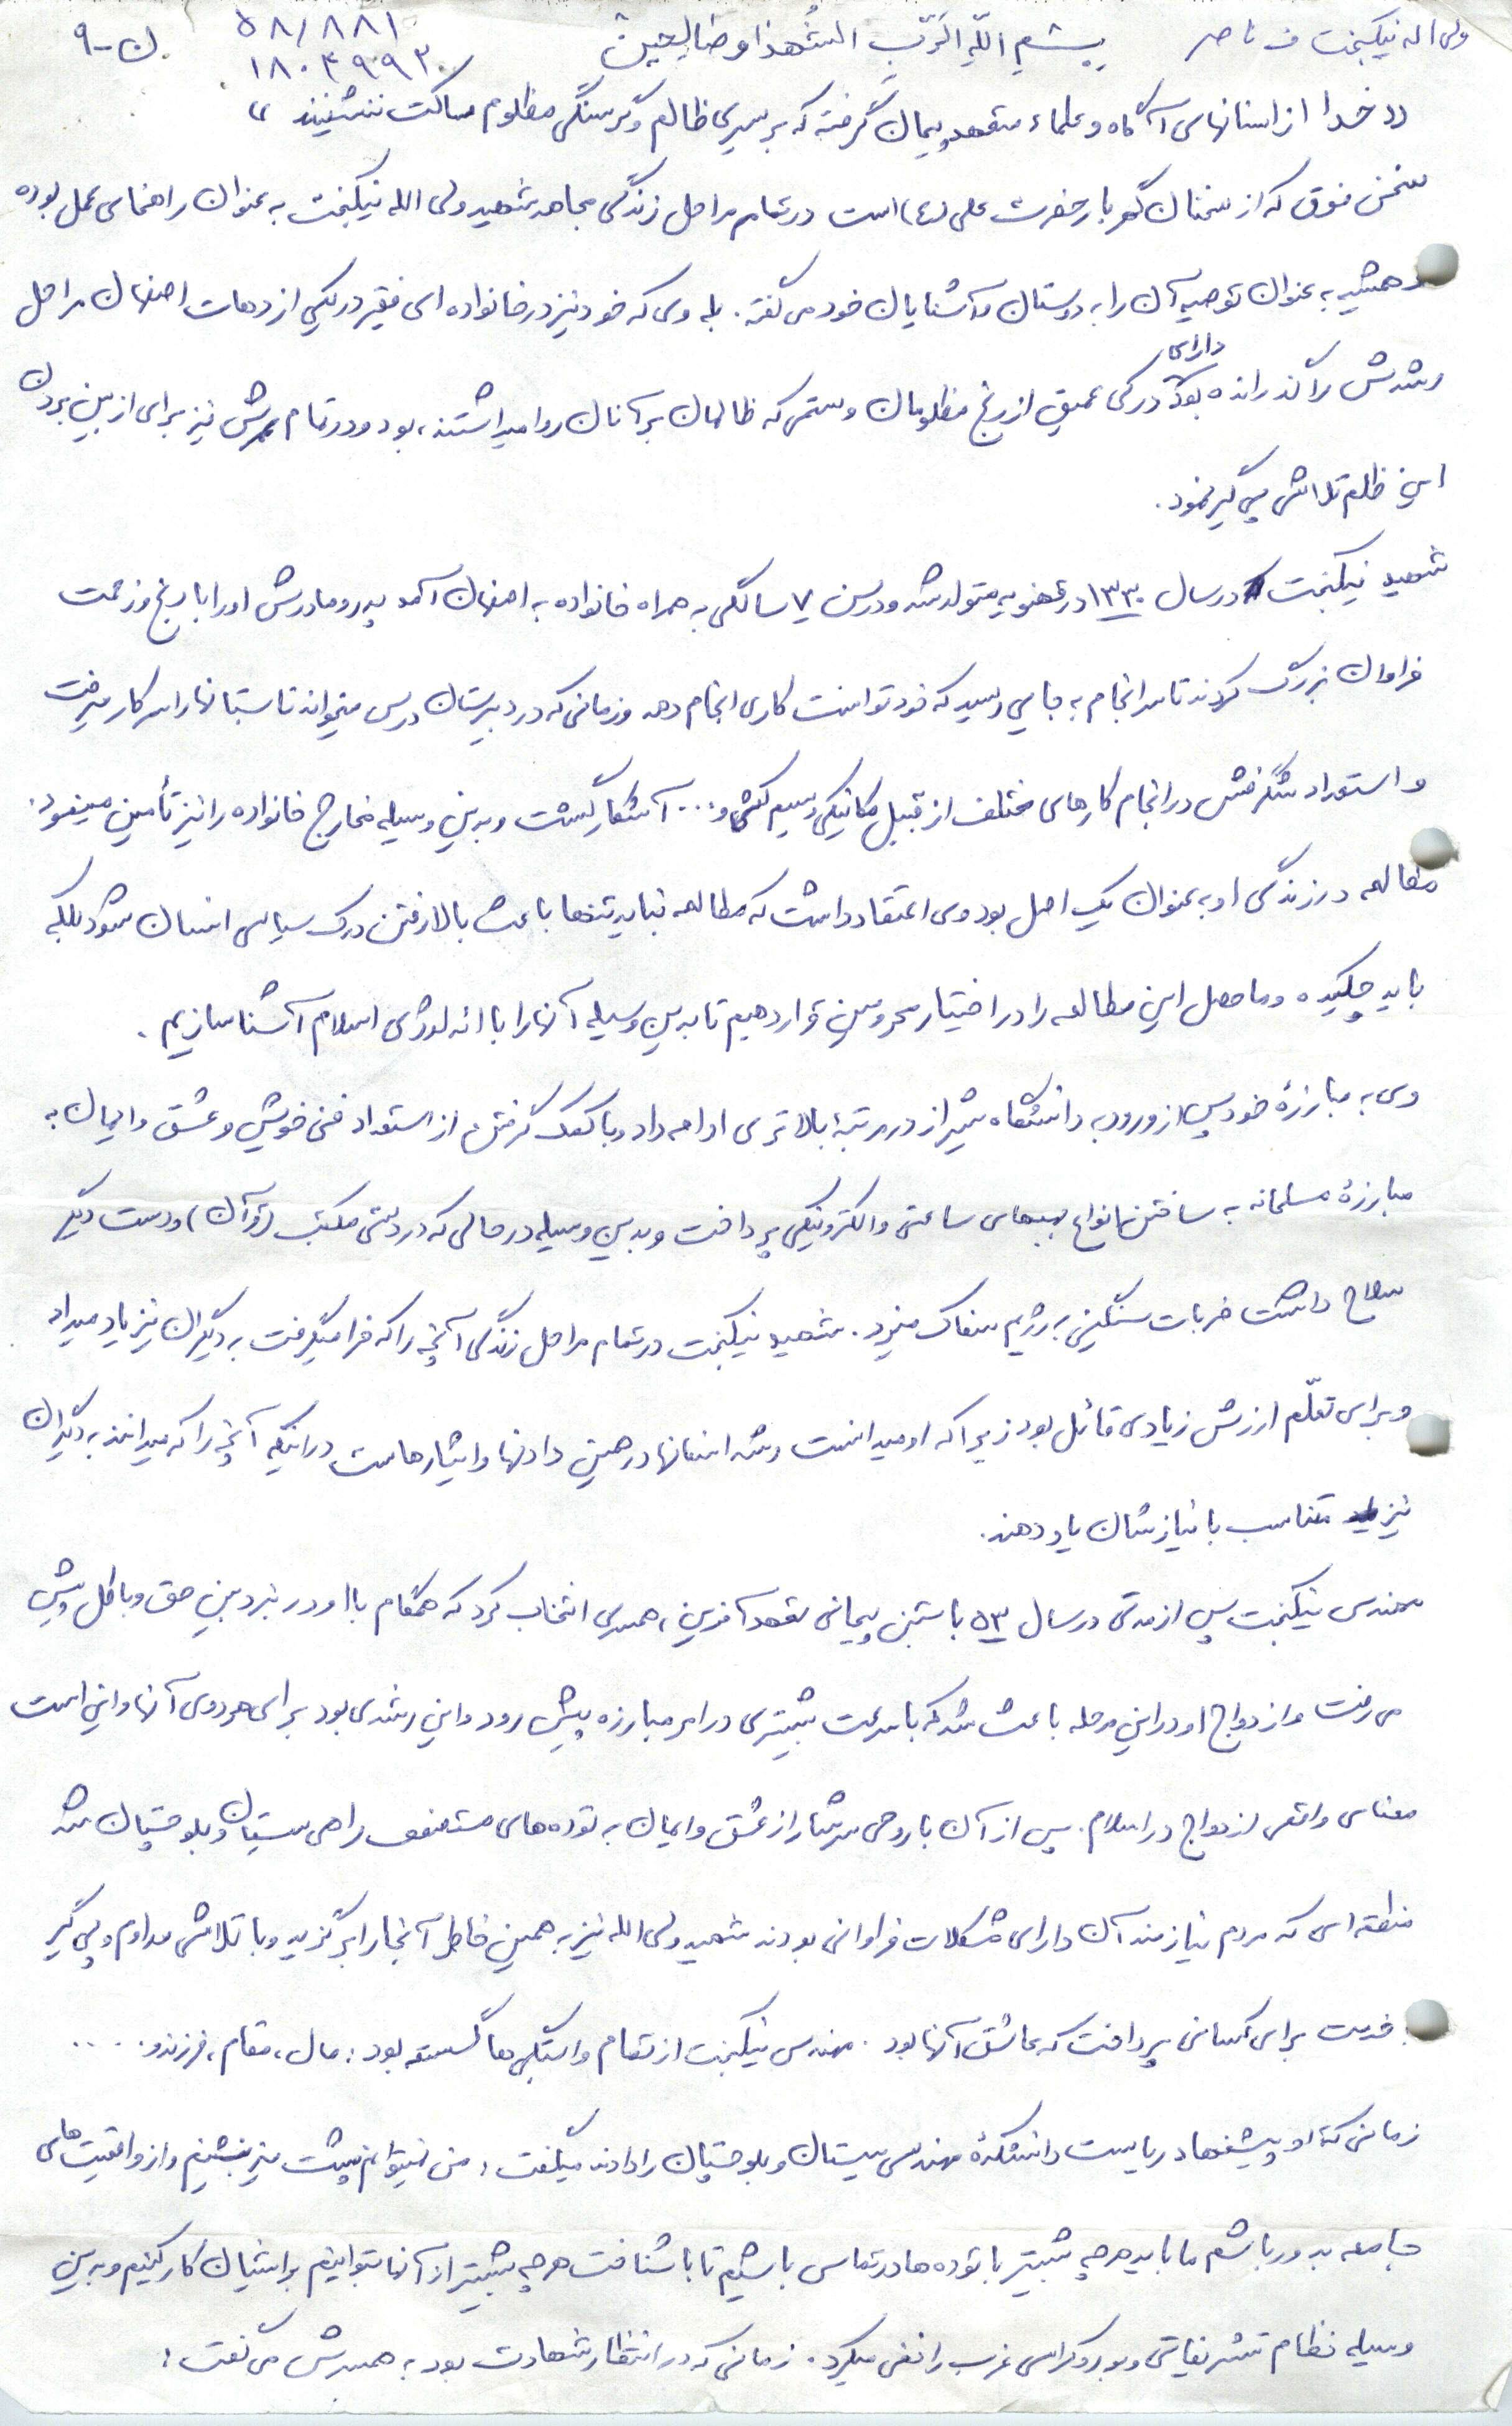 ولی اله نیکبخت ف ناصر
بِسْمِ اللّهِ الرَّبِ الشُهَداء و صالِحین
۵۸/۸۸۱
۱۸۰۴۹۹۳
ن-۹
«خدا از انسانهای آگاه و علماء متعهد پیمان گرفته که بر سیری ظالم و گرسنگی مظلوم ساکت ننشینند»
سخن فوق که از سخنان گهربار حضرت علی (ع) است در تمام مراحل زندگی مجاهد شهید ولی الله نیکبخت به عنوان راهنمای عمل بوده
و همیشه به عنوان توصیه آن را به دوستان و آشنایان خود می گفته. بله وی که خود نیز در خانواده ای فقیر در یکی از دهات اصفهان مراحل
رشدش را گذرانده بود دارای درکی عمیق از رنج مظلومان و ستمی که ظالمان بر آنان روا میداشتند، بود و در تمام عمرش نیز برای از بین بردن
این ظلم تلاش پی گیر نمود.
شهید نیکبخت در سال ۱۳۳۰ در متولد شد و در سن ۷ سالگی به همراه خانواده به اصفهان آمد پدر و مادرش او را با رنج و زحمت
فراوان بزرگ کردند تا سرانجام به جایی رسید که خود توانست کاری انجام دهد و زمانی که در دبیرستان درس میخواند تابستانها را سر کار میرفت
و استعداد شگرفش در انجام کارهای مختلف از قبیل مکانیکی و سیم کشی و... آشکار گشت و بدین وسیله مخارج خانواده را نیز تأمین مینمود.
مطالعه در زندگی او به عنوان یک اصل بود وی اعتقاد داشت که مطالعه نباید تنها باعث بالا رفتن درک سیاسی انسان شود بلکه
باید چکیده و ماحصل این مطالعه را در اختیار محرومین قرار دهیم تا بدین وسیله آنها را با ائدلوژی اسلام آشنا سازیم.
وی به مبارزهٔ خود پس از ورود به دانشگاه شیراز در مرتبهٔ بالاتری ادامه داد و با کمک گرفتن از استعداد فنی خویش و عشق و ایمان به
مبارزهٔ مسلحانه به ساختن انواع بمبهای ساعتی و الکترونیکی پرداخت و بدین وسیله در حالی که در دستی مکتب (قرآن) و دست دیگر
سلاح داشت ضربات سنگینی به رژیم سفاک میزد. شهید نیکبخت در تمام مراحل زندگی آنچه را که فرا میگرفت به دیگران نیز یاد میداد
و برای تعلّم ارزش زیادی قائل بود زیرا که او میدانست رشد انسانها در همین دادنها و ایثارهاست در اینکه آنچه را که میدانند به دیگران
نیز متناسب با نیازشان یاد دهند.
مهندس نیکبخت پس از مدتی در سال ۵۳ با بستن پیمانی تعهد آفرین، همسری انتخاب کرد که همگام با او در نبرد بین حق و باطل پیش
می رفت و ازدواج او در این مرحله باعث شد که با سرعت بیشتری در امر مبارزه پیش رود و این رشدی بود برای هر دوی آنها و این است
معنای واقعی ازدواج در اسلام. پس از آن با روحی سرشار از عشق و ایمان به توده های مستضعف راهی سیستان و بلوچستان شد
منطقه ای که مردم نیازمند آن دارای مشکلات فراوانی بودند شهید ولی الله نیز به همین خاطر آنجا را برگزید و با تلاشی مداوم و پی گیر
به خدمت برای کسانی پرداخت که عاشق آنها بود. مهندس نیکبخت از تمام وابستگی ها گسسته بود: مال، مقام، فرزند و.....
زمانی که به او پیشنهاد ریاست دانشکدهٔ مهندسی سیستان و بلوچستان را دادند میگفت: من نمیتوانم پشت میز بنشینم و از واقعیت های
جامعه بدور باشم ما باید هر چه بیشتر با توده ها در تماس باشیم تا با شناخت هر چه بیشتر از آنها بتوانیم برایشان کار کنیم و بدین
وسیله نظام تشریفاتی و بوروکراسی غرب را نفی میکرد. زمانی که در انتظار شهادت بود به همسرش می گفت: